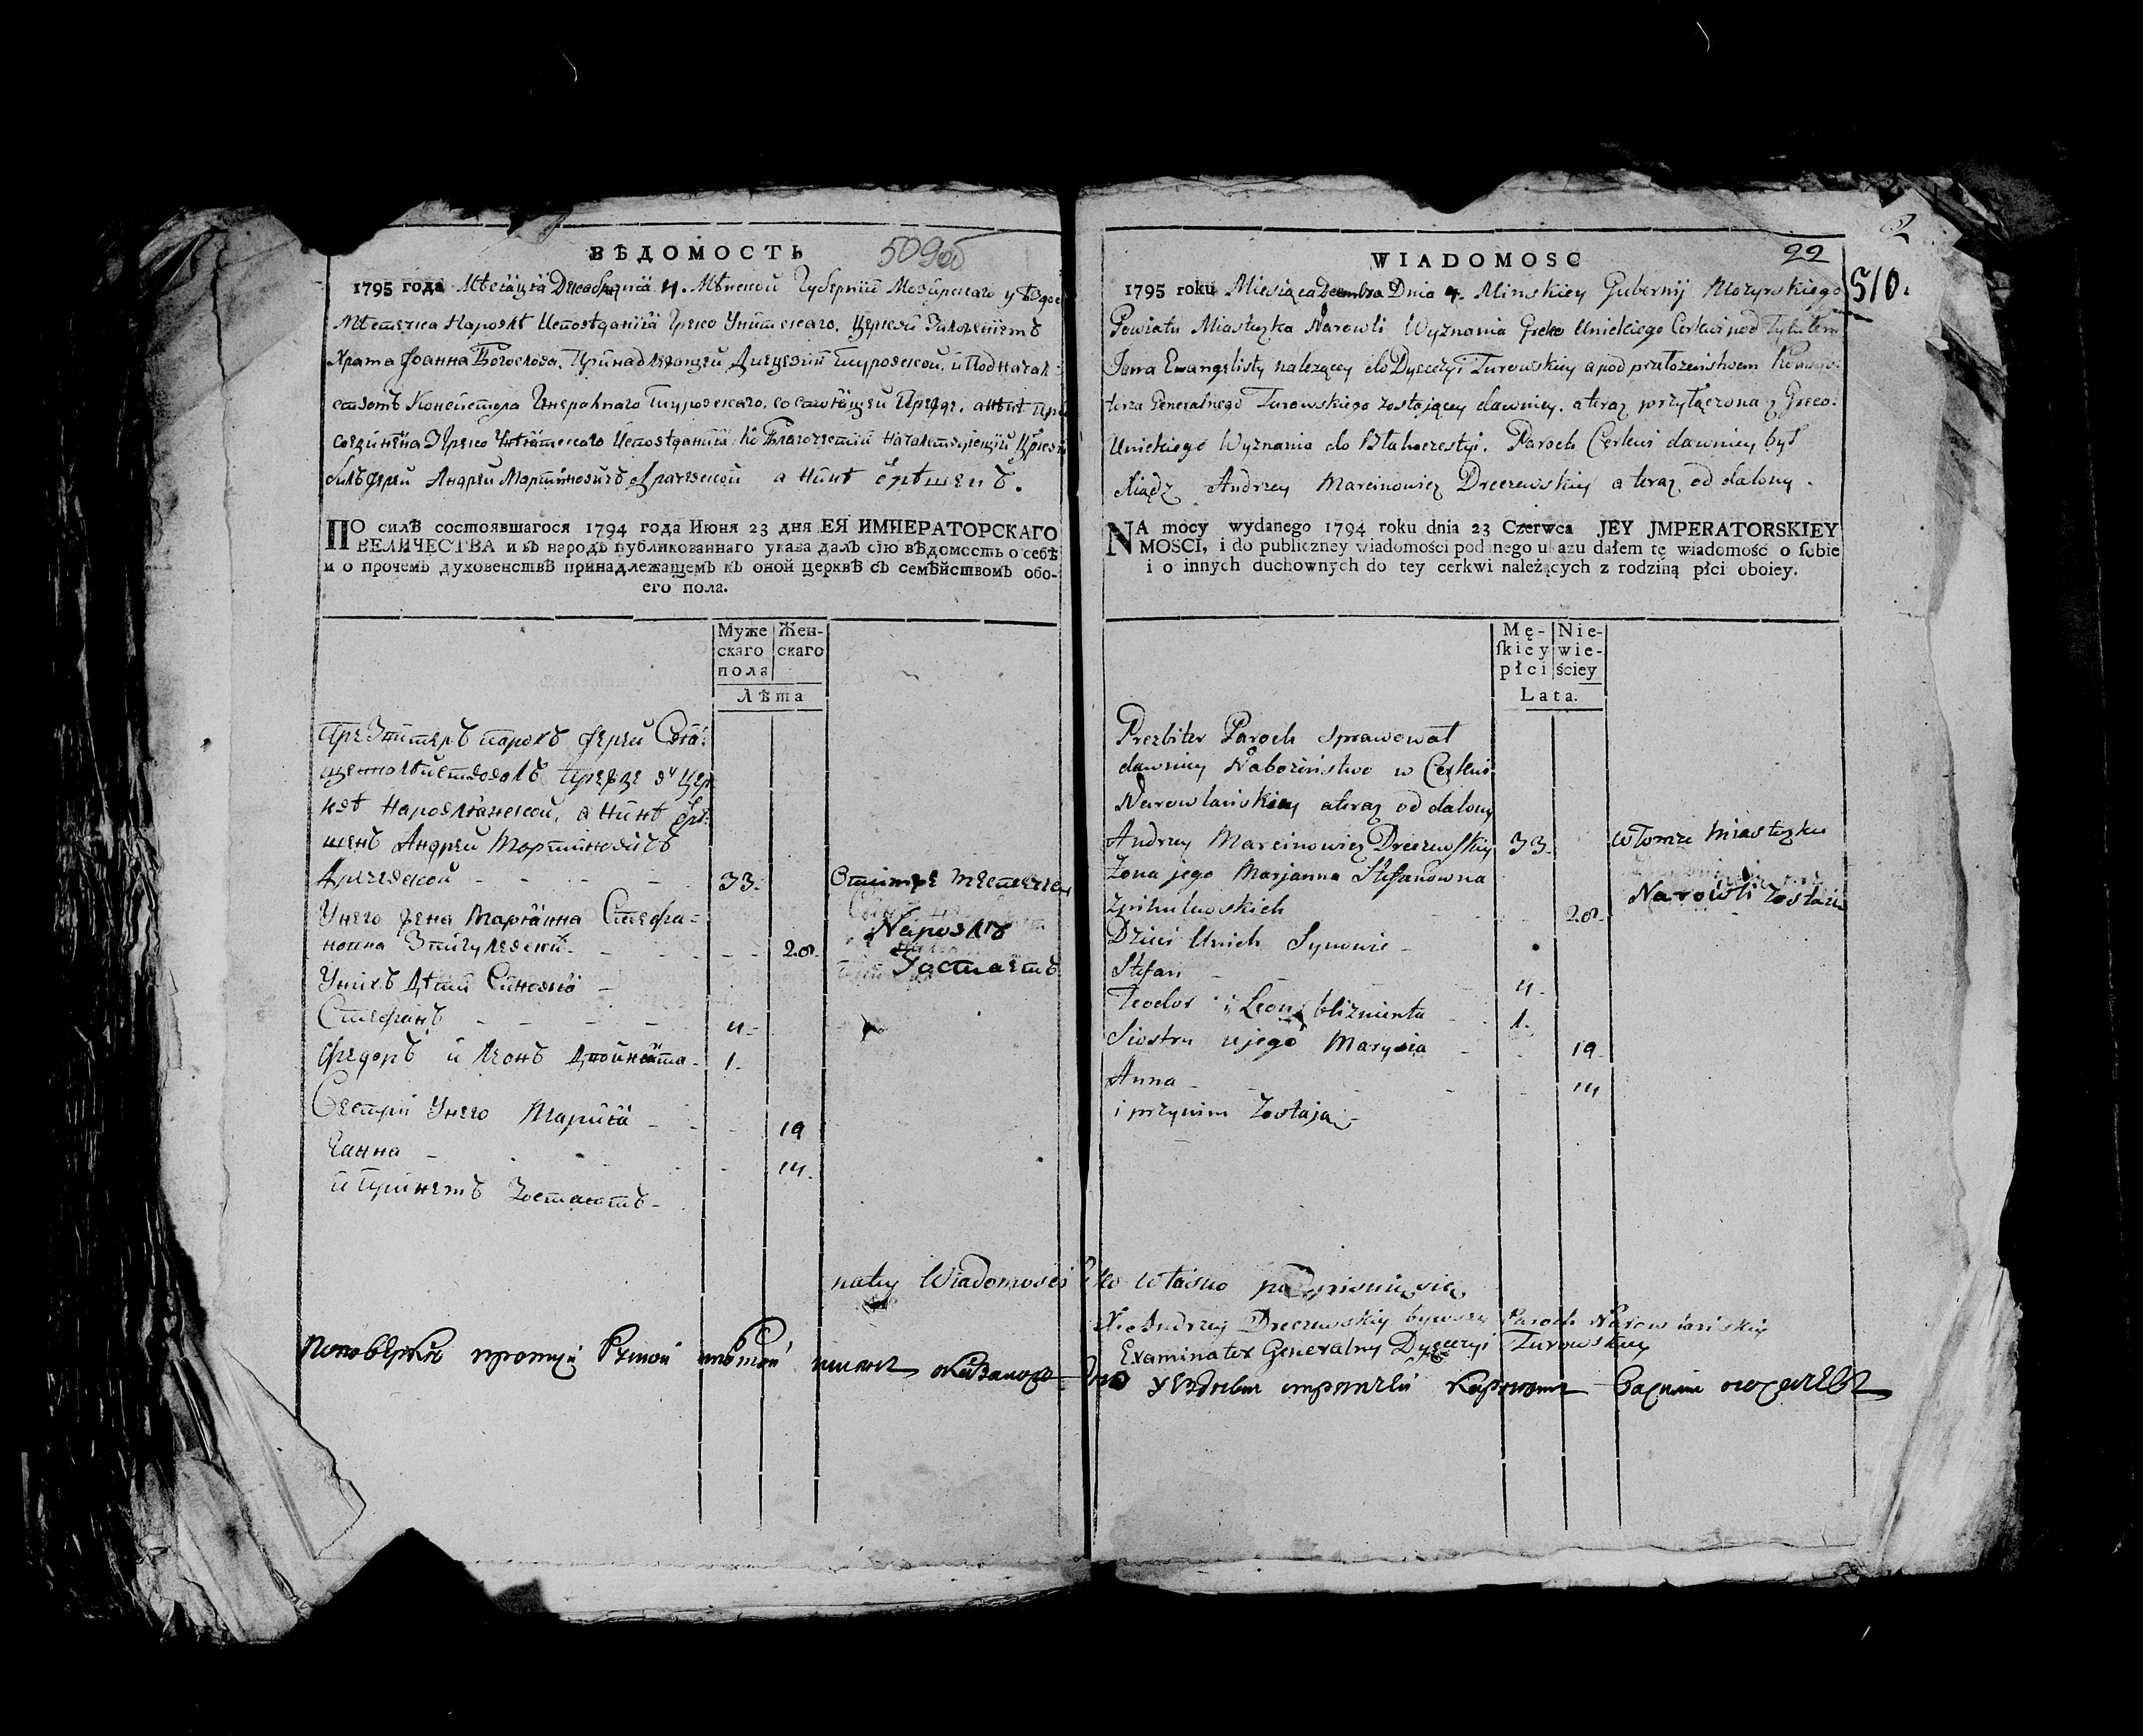 ВѢДОМОСТЬ 509об
1795 года Мѣсяця Декабря дня 4. Мѣнской Губернїи Мозирского уѣздос
Мѣстечка Наровлѣ Исповѣданїя Греко Унитского, Церкви
Храма Іоанна Богослова, Принадлежащей Диецезїи Туровской, и Под начал-
ствомъ Консистора Генералного Туровского, состоящей Прежде, а нинѣ при
соединена З Греко Унѣятского Исповѣданїя Ко Благочестїю Церкви
билъ Іерей Андрей Мартиновичъ Драчевской а нинѣ ѿрѣшенъ.
ПО силѣ состоявшагося 1794 года Июня 23 дня ЕЯ ИМПЕРАТОРСКАГО
ВЕЛИЧЕСТВА и въ народъ публикованнаго указа далъ сію вѣдомость о себѣ
и о прочемъ духовенствѣ принадлежащемъ къ оной церквѣ съ семѣйствомъ обо-
его пола.
Муже Жен-
скаго скаго
пола
Лѣта
Презвитеръ парохъ Іерей Свѧ-
щеннодѣйствовалъ прежде въ Цер
квѣ Наровлянской, а нинѣ ѿрѣ-
шенъ Андрей Мартиновичъ
Дречевской - - - 33. Втимже местечку
Унего жена Марїянна Стефа- Наровлѣ
новна - - 28. Зостаетъ
Унихъ Дѣтей Синовя -
Стефанъ - - - - 4-
Федоръ и Леонъ Двойнята- 1-
Сестри Унего Марися - - 19
Ганна - - 14.
и Принемъ Зостаютъ-
WIADOMOSC 22
510.
1795 roku Miesiąca Decembra Dnia 4. Minskiey Gubernij Mozyrskiego
Powiatu Miasteczka Narowli Wyznania Greko Unickiego Cerkwi pod Tytułem
Jana Ewangelisty należącey do Dyecezyi Turowskiey a pod przełożeństwem Konsys-
torza Generalnego Turowskiego zostającey dawniey, a teraz przyłączona z Greco-
Unickiego Wyznania do Błahoczestyi. Paroch Cerkwi dawniey był
Xiądz Andrzey Marcinowicz Dreczewskiy a teraz oddalony.
NA mocy wydanego 1794 roku dnia 23 Czerwca JEY JMPERATORSKIEY
MOSCI, i do publiczney wiadomości podanego ukazu dałem tę wiadomość o ſobie
i o innych duchownych do tey cerkwi należących z rodziną płci oboiey.
Mę- Nie-
ſkiey wie-
płci ściey
Lata.
Prezbiter Paroch sprawował
dawniey Nabożeństwo w Cerkwi
Narowlańskiey a teraz oddalony
Andrzey Marcinowicz Dreczewskiy 33. w Tomże Miasteczku
Żona jego Marjanna Stefanowna Narowli zostaie
28.
Dzieci Unich Synowie -
Stefan - - - 4-
Teodor i Leon bliznienta - - 1.
Siostry ujego Marysia - - 19.
Anna - - - 14
i przynim Zostają-
na tey Wiadomości Ręko własno podpisuię się
X. Andrzey Dreczewskiy bywszy Paroch Narowlańskiy
Examinator Generalny Dyecezyi Turowskiey